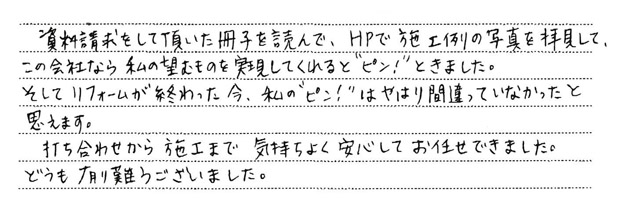 資料請求をして頂いた冊子を読んで、HPで施工例の写真を拝見して、
この会社なら私の望むものを実現してくれると"ピン!"ときました。
そしてリフォームが終わった今、私の"ピン!"はやはり間違っていなかったと
思えます。
打ち合わせから施工まで気持ちよく安心してお任せできました。
どうも有り難うございました。